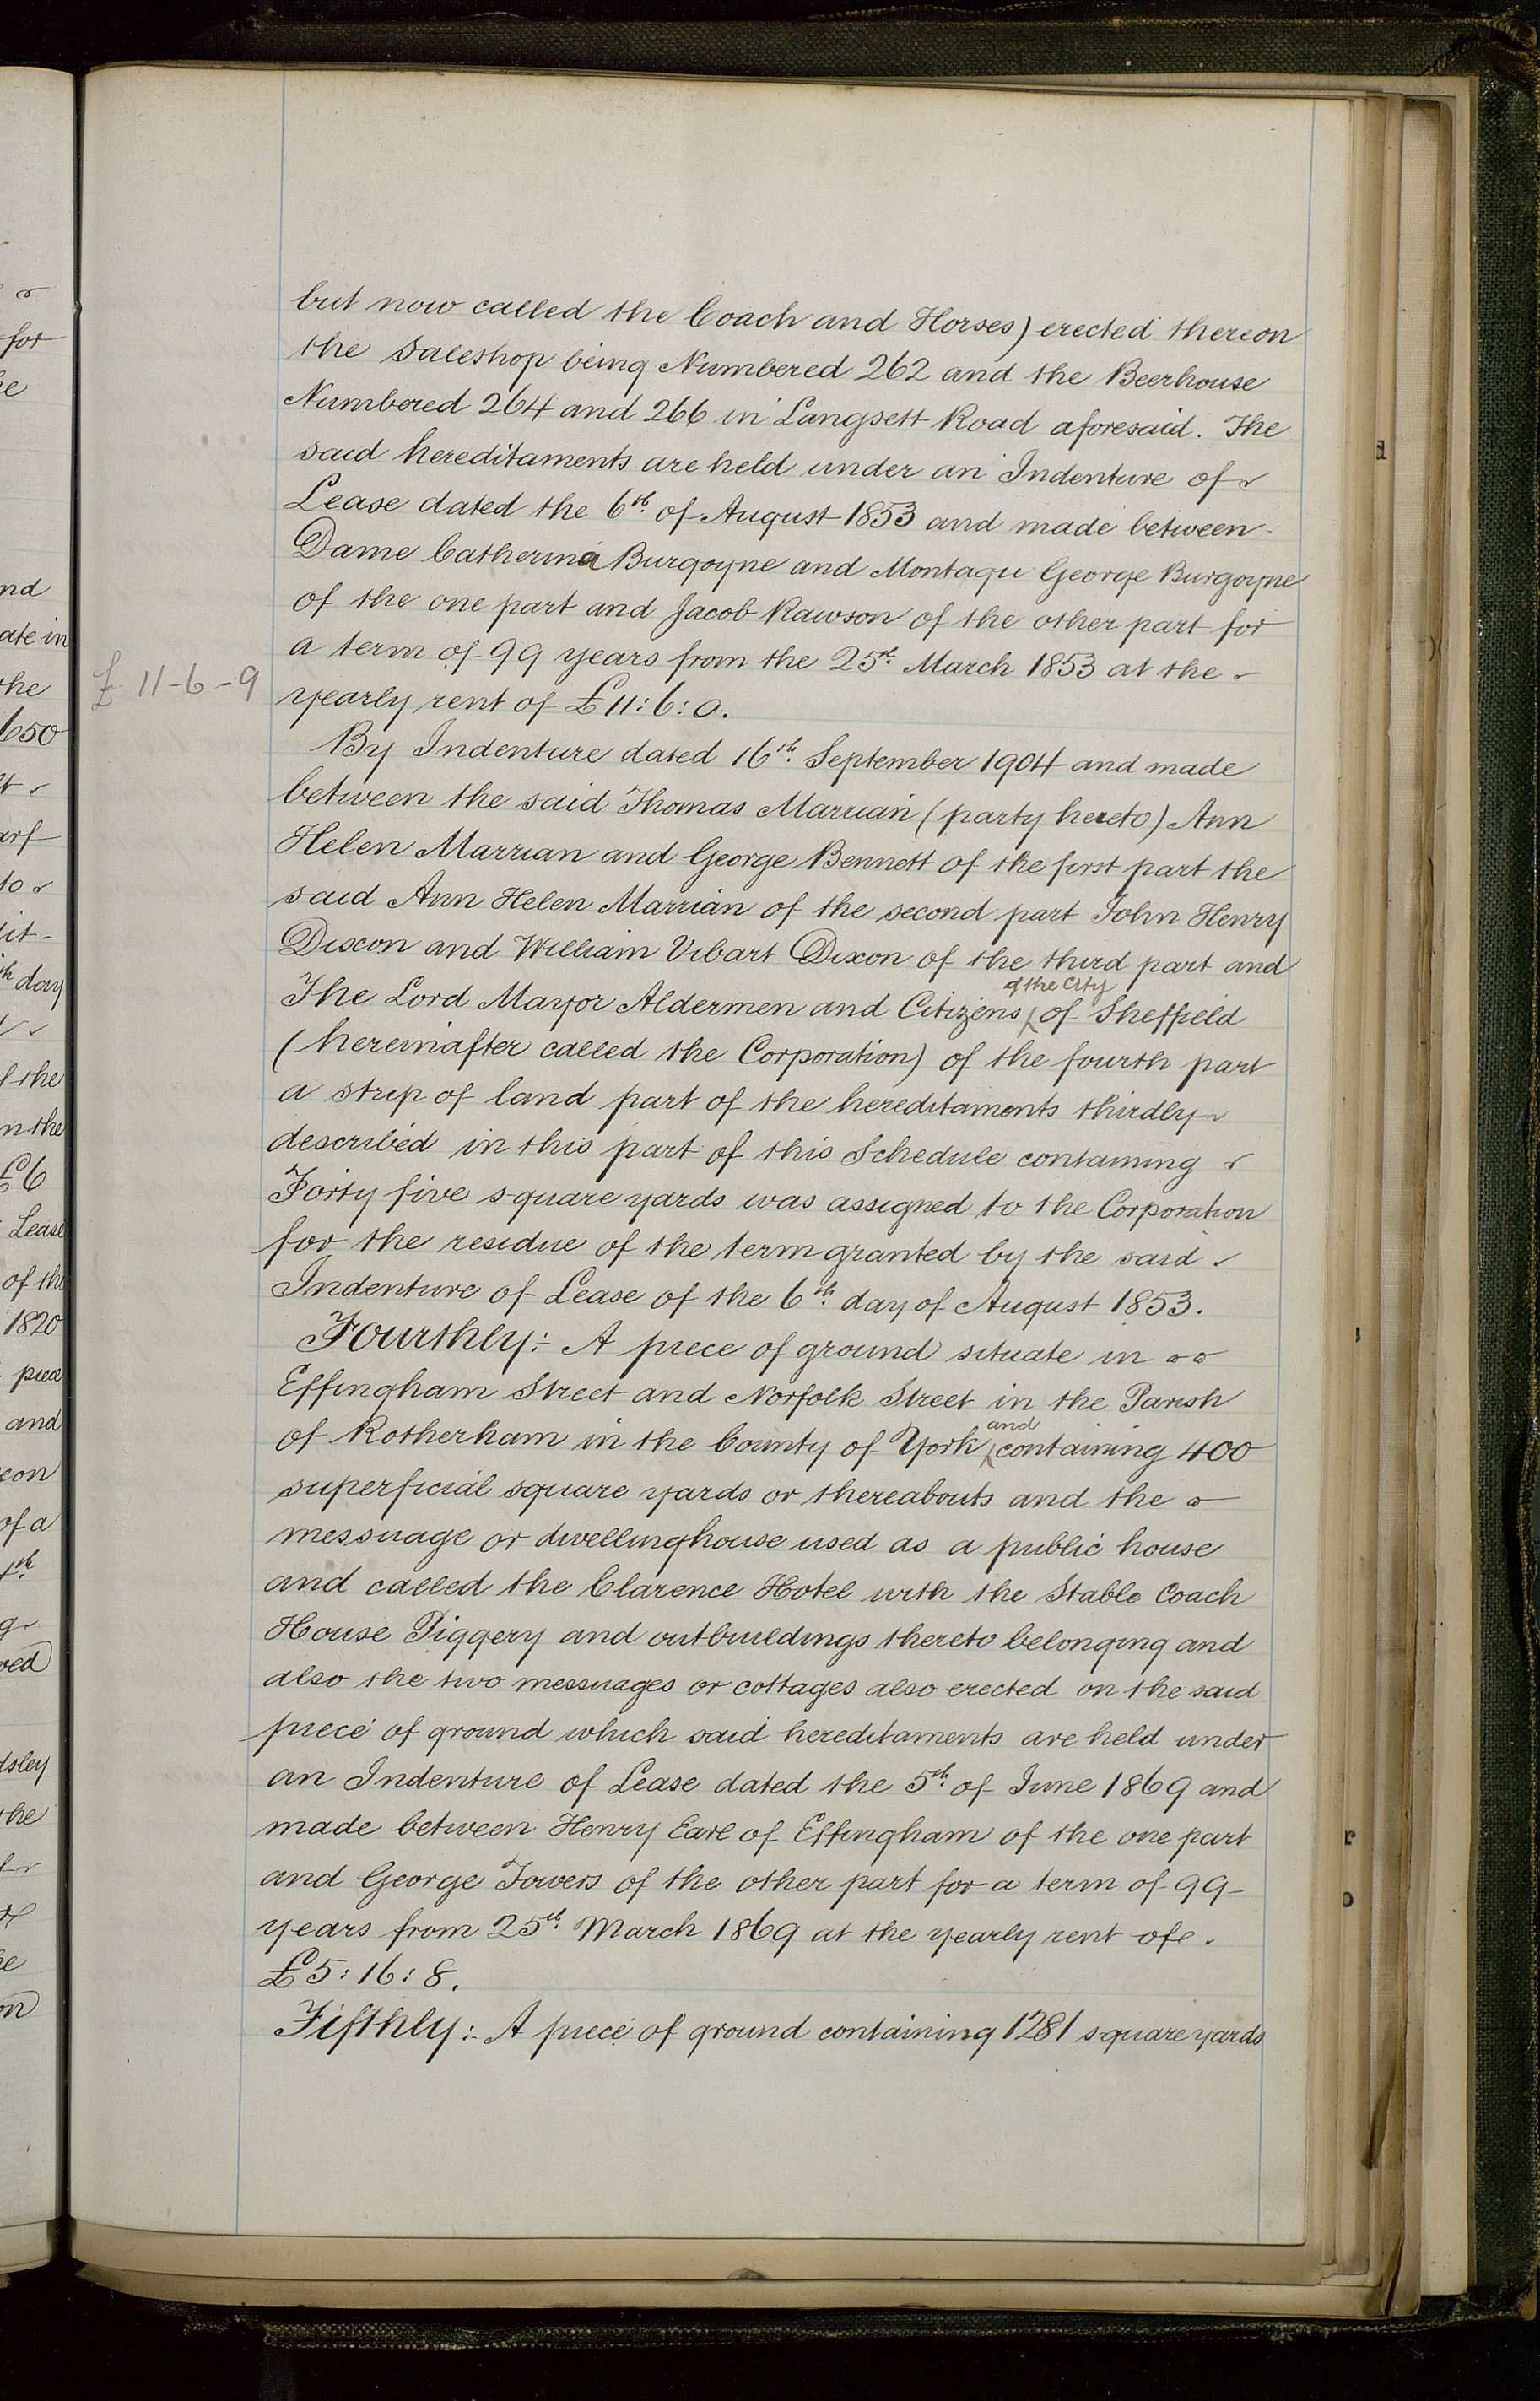 but now called the Coach and Horses) erected thereon
the Saleshop being Numbered 262 and the Beerhouse
Numbered 264 and 266 in Langsett Road aforesaid. The
said hereditaments are held under an Indenture of
Lease dated the 6th. of August 1853 and made between
Dame Catherina Burgoyne and Montagu George Burgoyne
of the one part and Jacob Rawson of the other part for
a term of 99 years from the 25th. March 1853 at the
£ 11-6-9
yearly rent of £11:6:0.
By Indenture dated 16th. September 1904 and made
between the said Thomas Marrian (party hereto) Ann
Helen Marrian and George Bennett of the first part the
said Ann Helen Marrian of the second part John Henry
Dixon and William Vibart Dixon of the third part and
of the City
The Lord Mayor Aldermen and Citizens of Sheffield
(hereinafter called the Corporation) of the fourth part
a strip of land part of the hereditaments thirdly
described in this part of this Schedule containing
Forty five square yards was assigned to the Corporation
for the residue of the term granted by the said
Indenture of Lease of the 6th. day of August 1853.
Fourthly:- A piece of ground situate in
Effingham Street and Norfolk Street in the Parish
and
of Rotherham in the County of York containing 400
superficial square yards or thereabouts and the
messuage or dwellinghouse used as a public house
and called the Clarence Hotel with the Stable Coach
House Piggery and outbuildings thereto belonging and
also the two messuages or cottages also erected on the said
piece of ground which said hereditaments are held under
an Indenture of Lease dated the 5th. of June 1869 and
made between Henry Earl of Effingham of the one part
and George Towers of the other part for a term of 99
years from 25th. March 1869 at the yearly rent of
£5:16:8.
Fifthly:- A piece of ground containing 1281 square yards